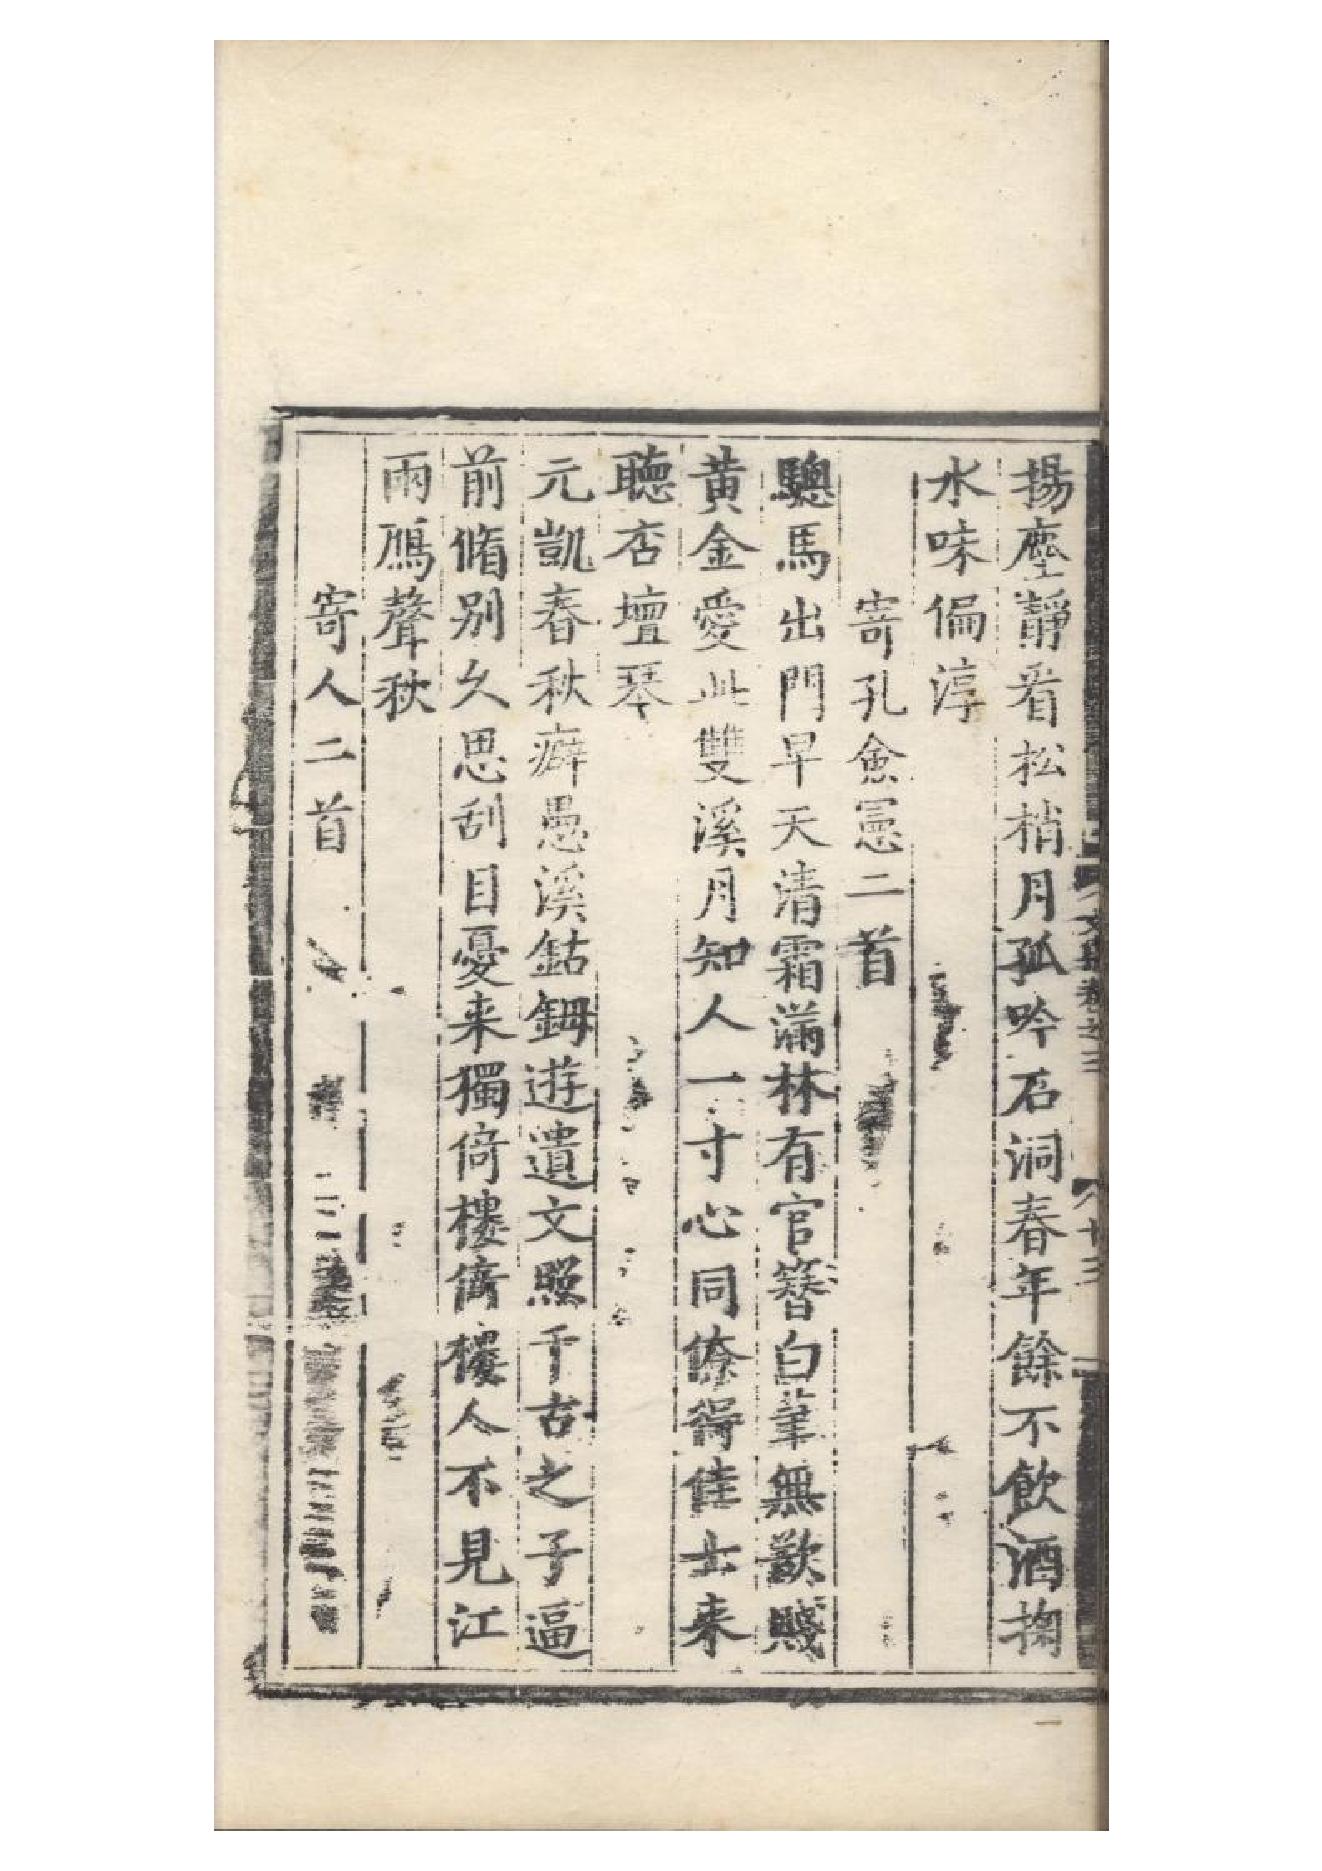 揚塵靜看松梢月孤吟石洞春年餘不飲酒掬
水味偏淳
寄孔僉憲二首
驄馬出門早天清霜滿林有官簪白筆無歎賤
黃金愛此雙溪月知人一寸心同僚得佳士来
聽杏壇琴
元凱春秋癖愚溪鈷鉧遊遺文照千古之子逼
前脩别久思刮目憂来獨倚樓倚樓人不見江
雨鴈聲秋
寄人二首
文集卷之三
廿三